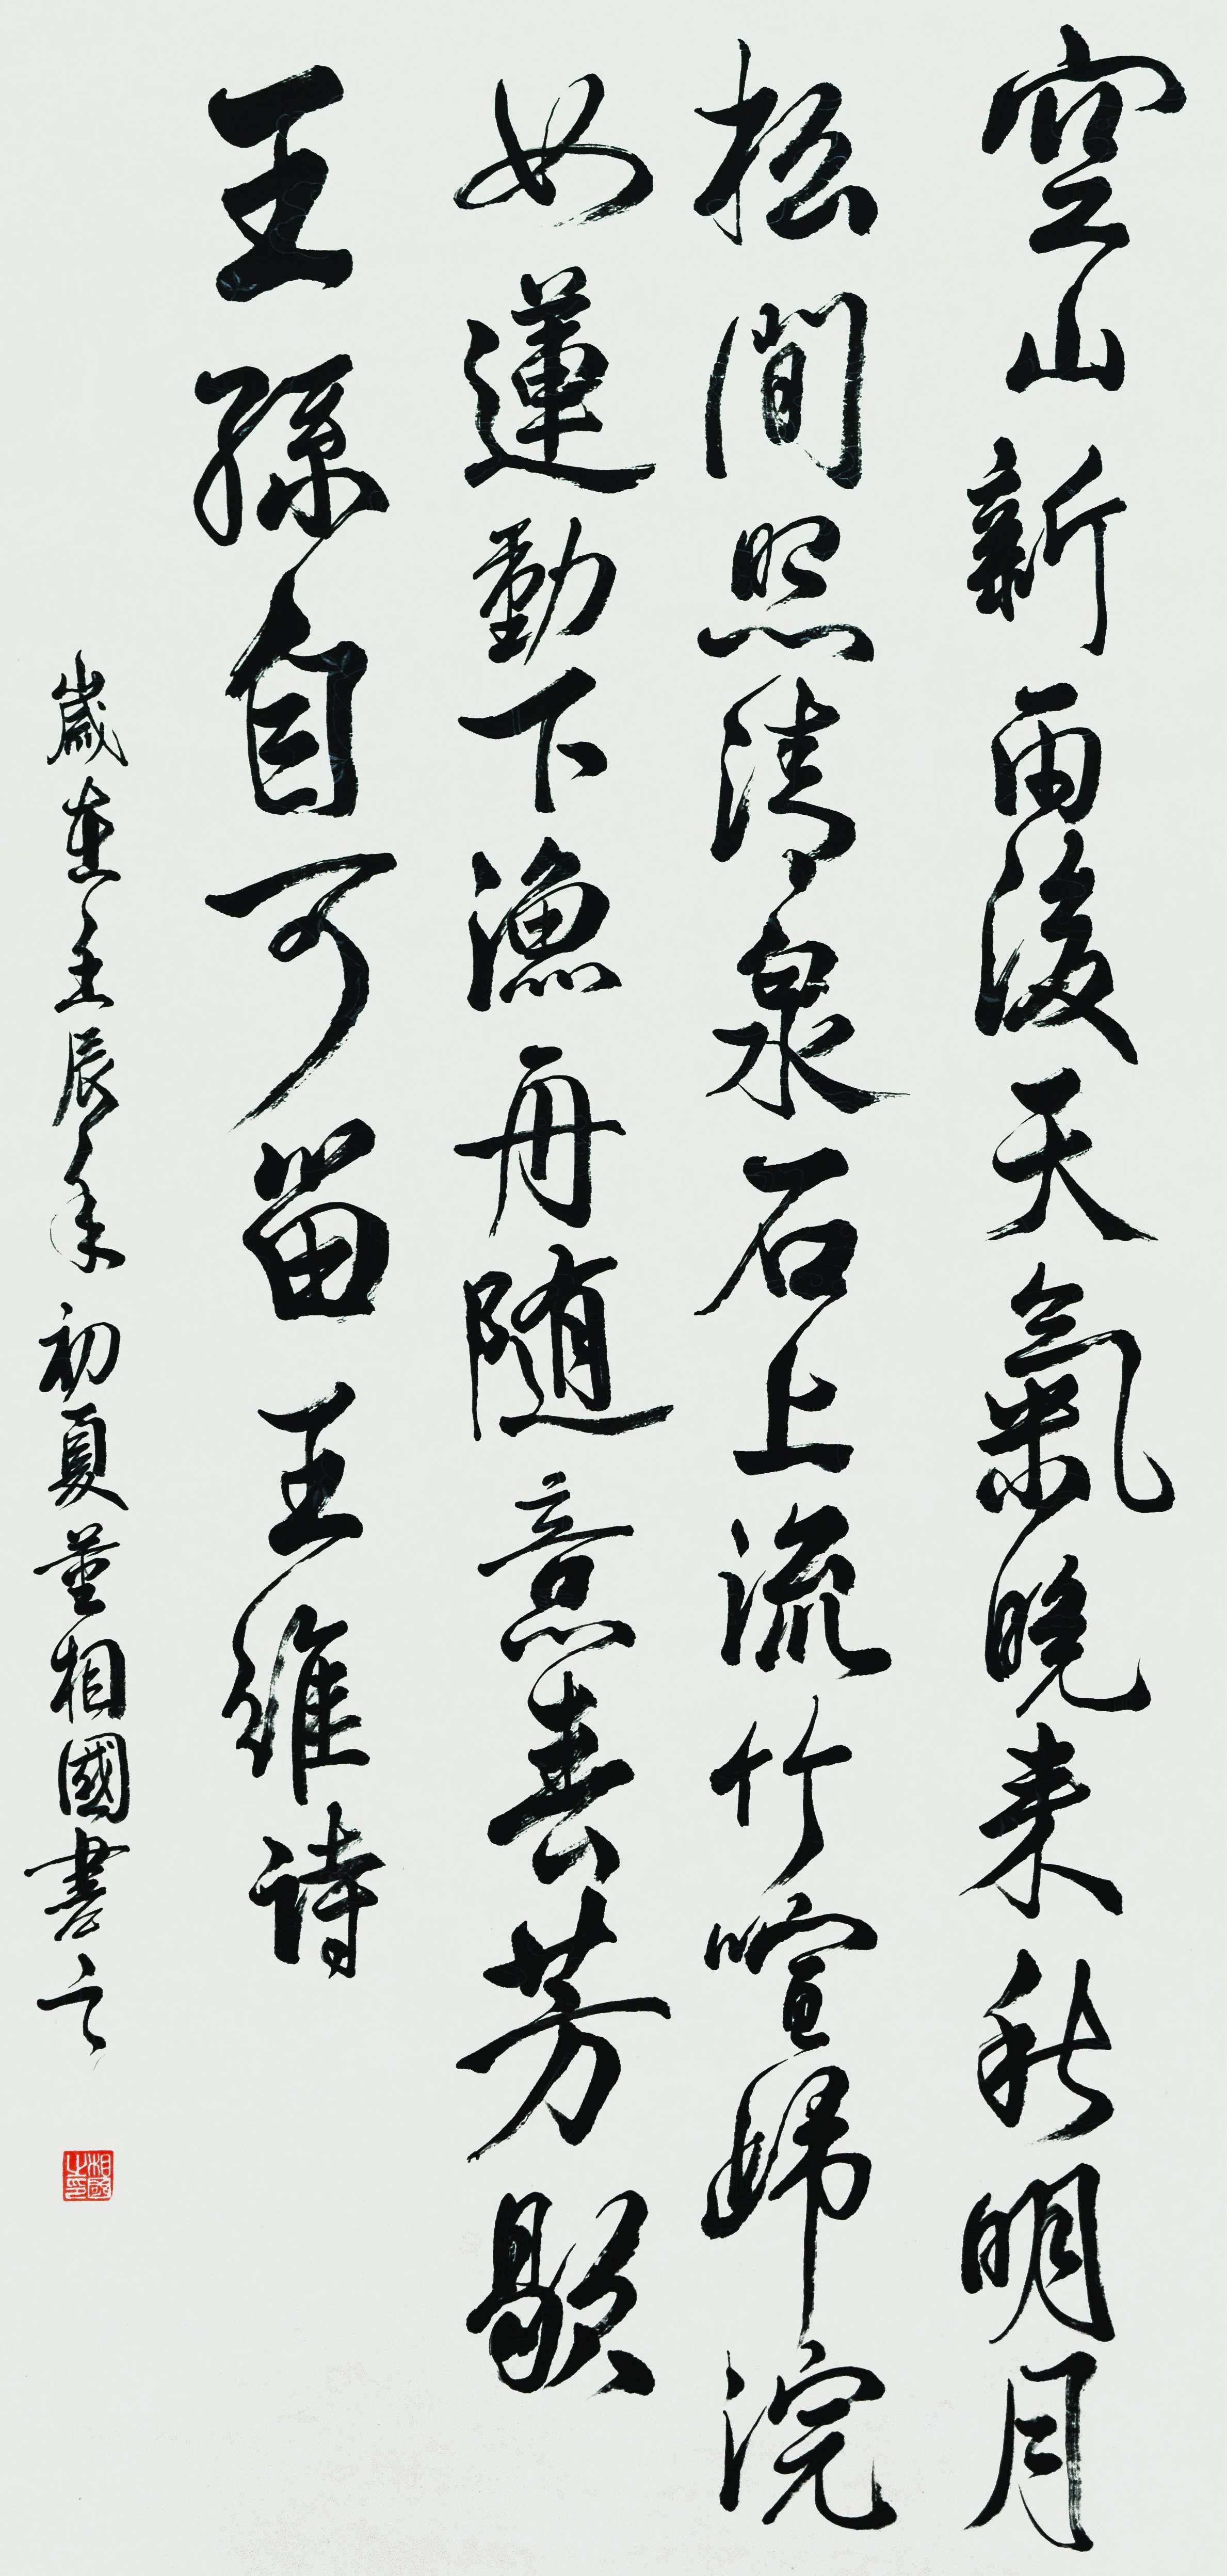 空山新雨後天氣晚来秋明月
松間照清泉石上流竹喧歸浣
女蓮動下漁舟随意春芳歇
王孫自可留王維詩
歲在壬辰年初夏董相國書之
相國之印